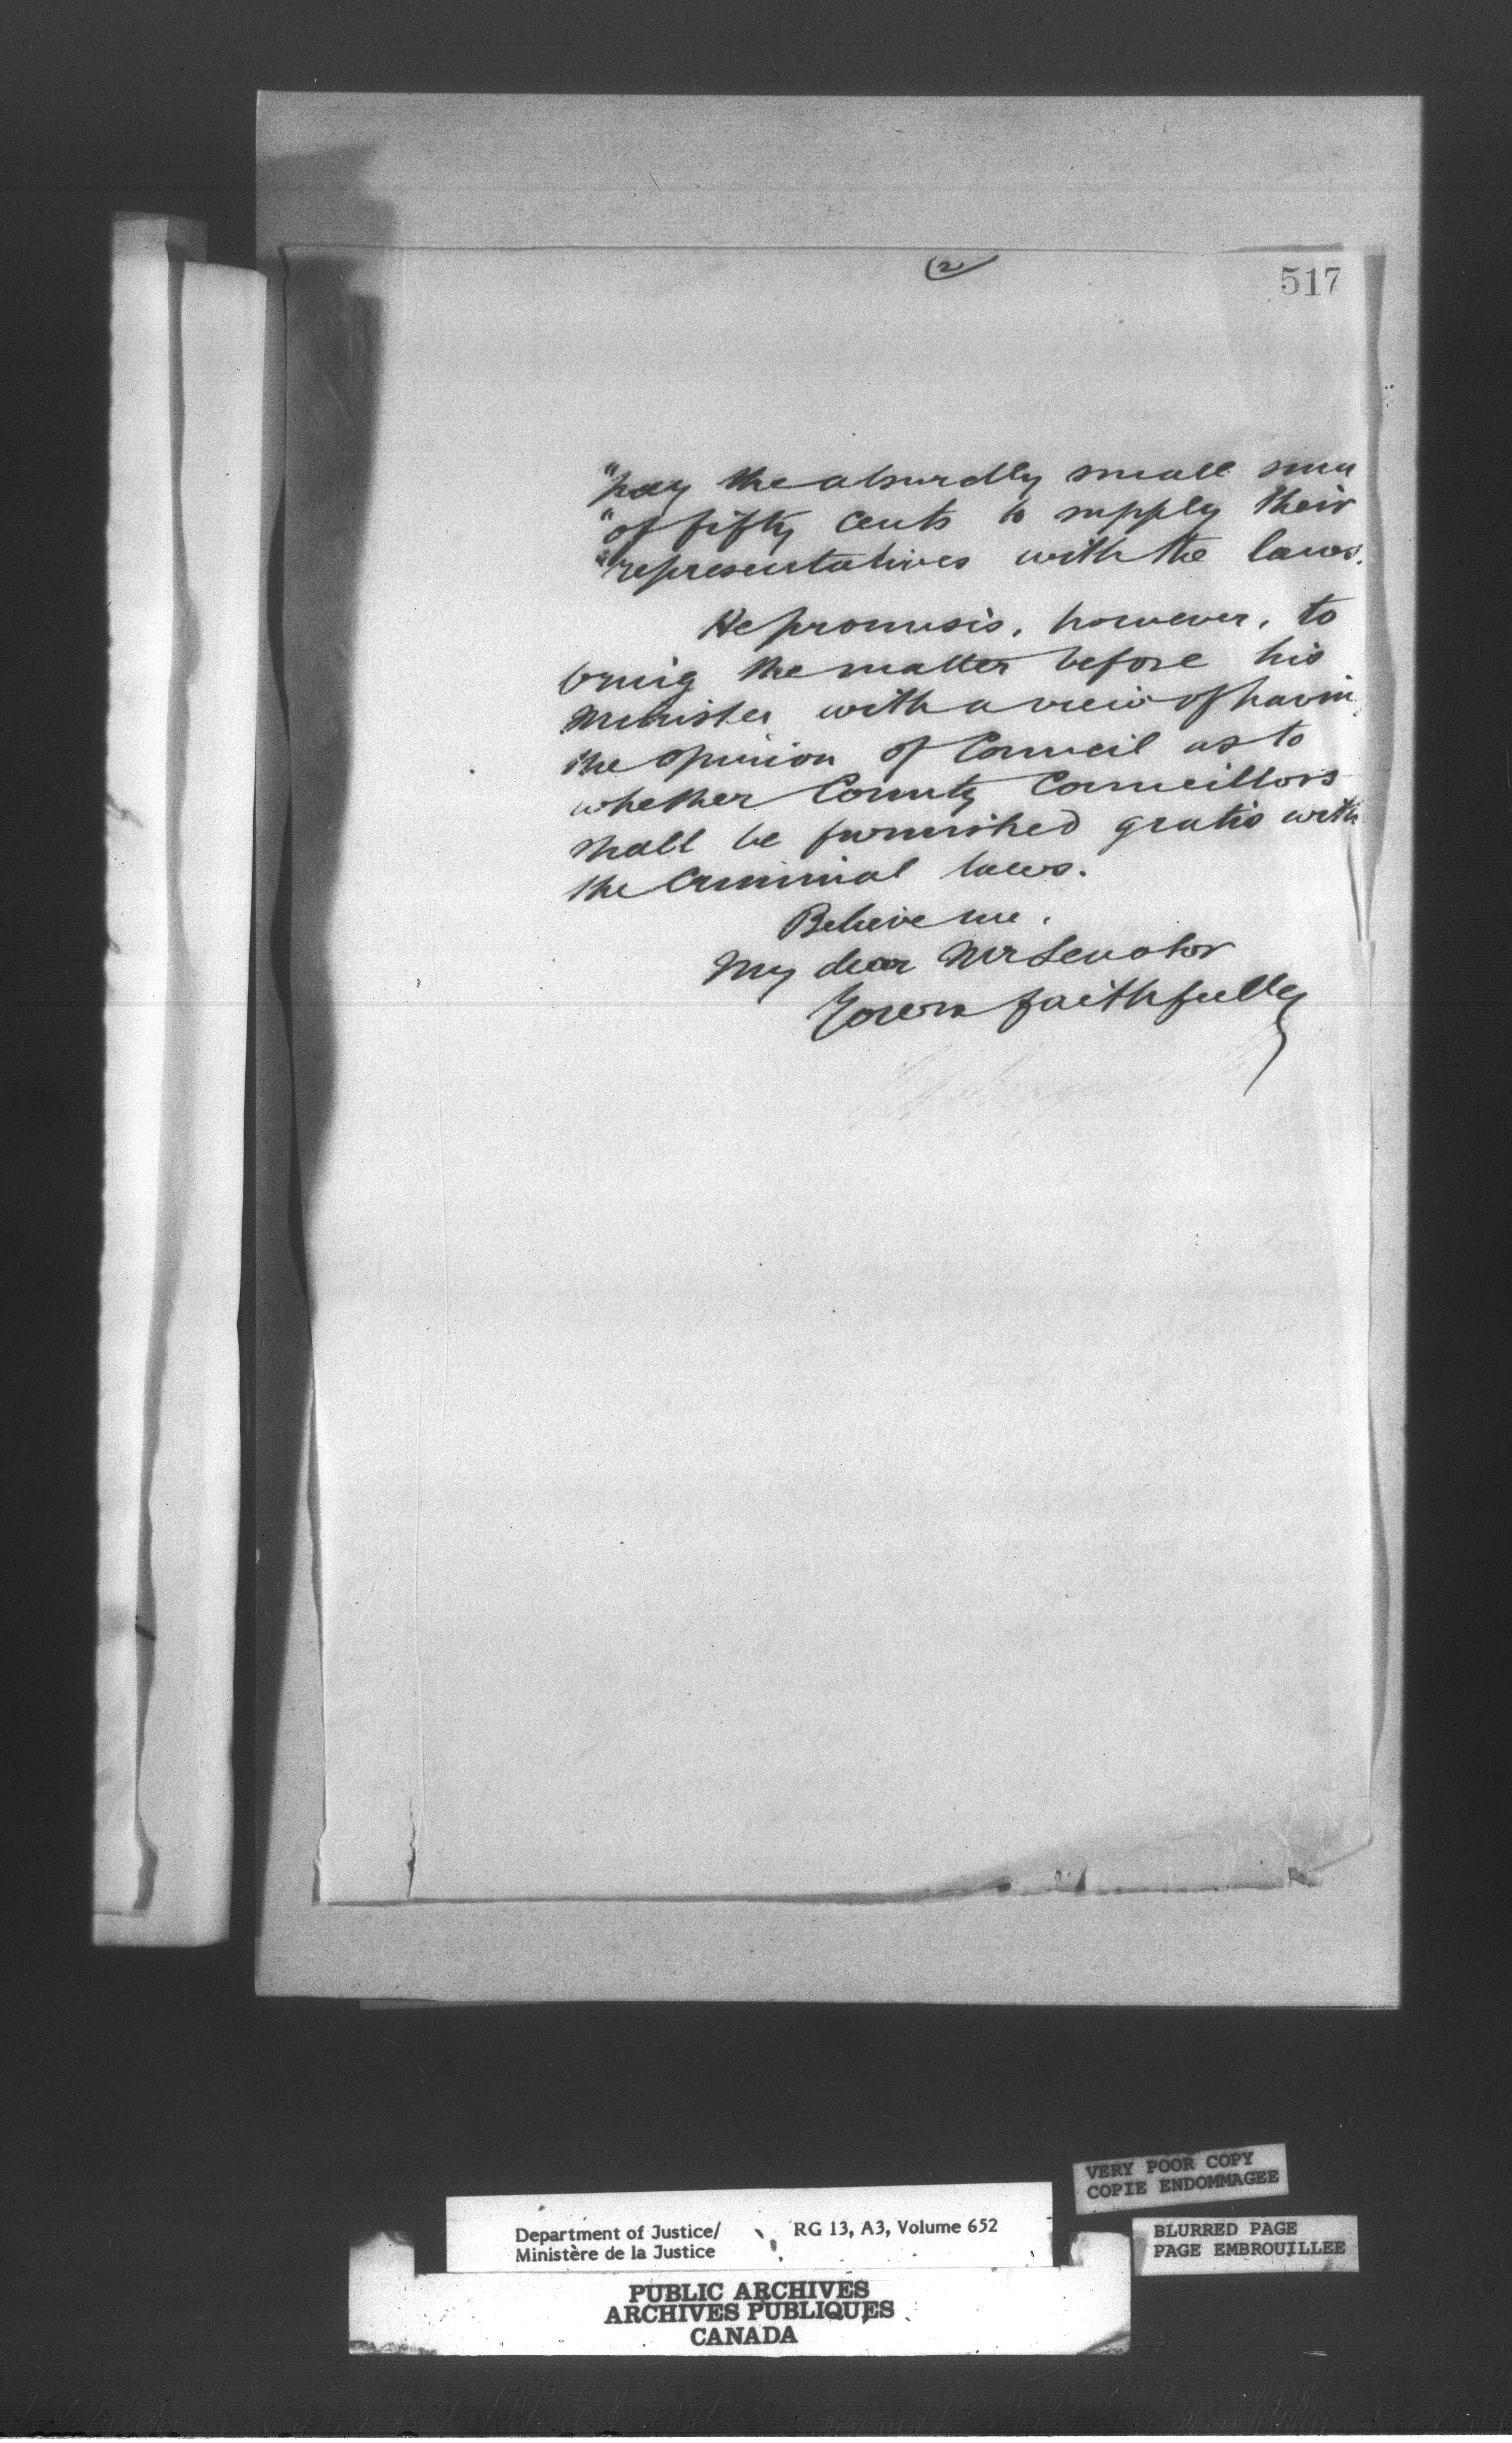 (2)
517
"pay the absurdly small sum
"of fifty cents to supply their
"representatives with the laws.
He promises, however, to
bring the matter before his
Minister with a view of havin
the opinion of Council as to
whether County Councillors
shall be furnished gratis with
the Criminal laws.
Believe me,
My dear Mr Senator
Yours faithfully
VERY POOR COPY
COPIE ENDOMMAGEE
Department of Justice/ RG 13, A3, Volume 652
Ministère de la Justice
BLURRED PAGE
PAGE EMBROUILLEE
PUBLIC ARCHIVES
ARCHIVES PUBLIQUES
CANADA